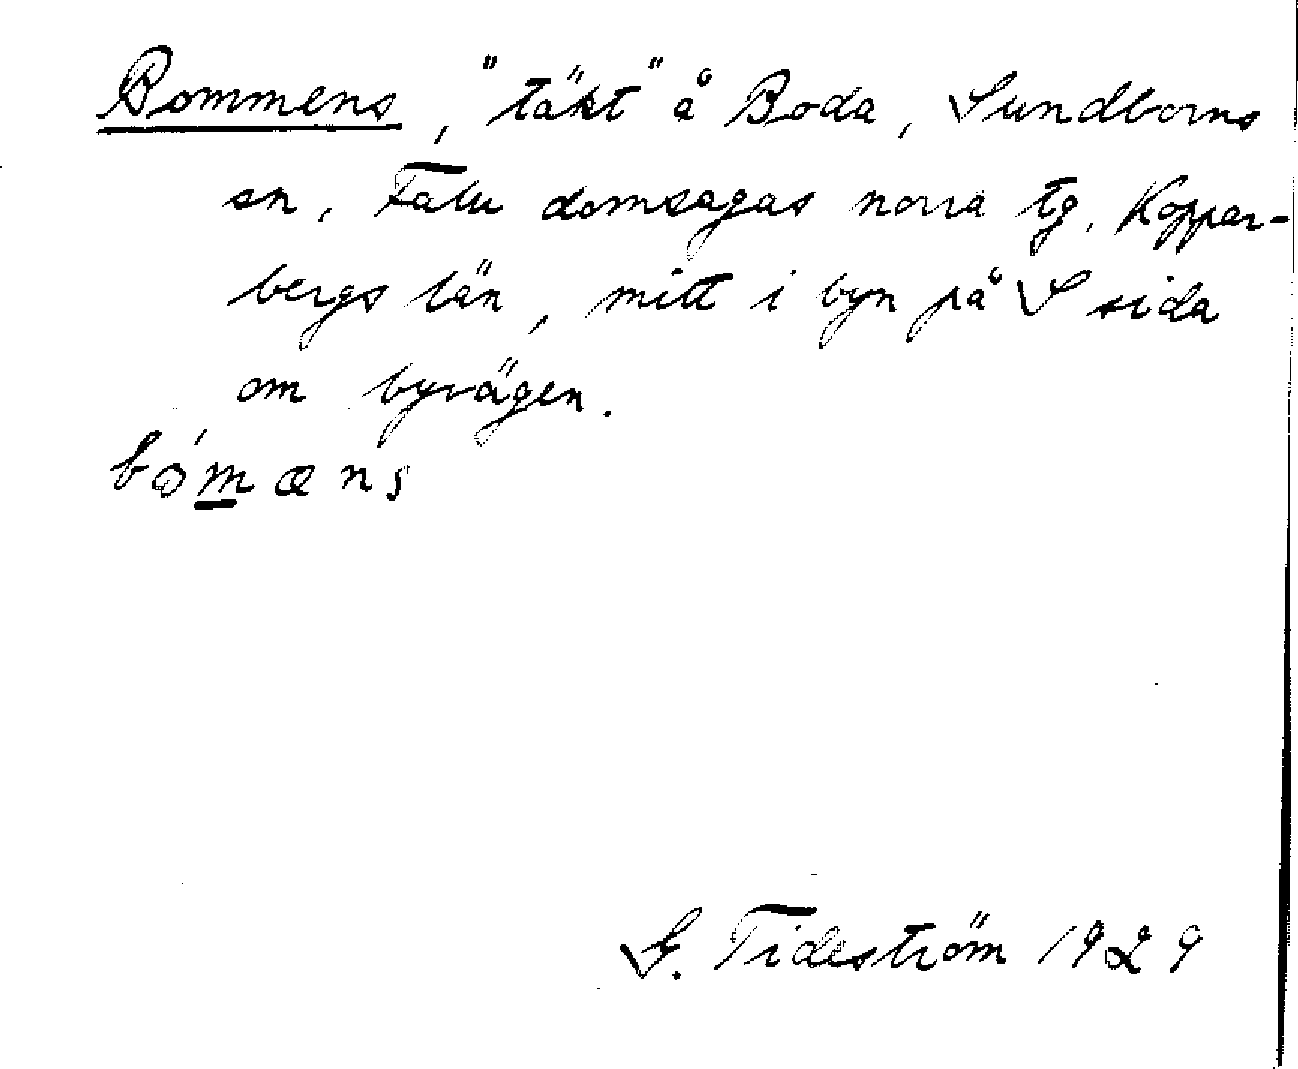 Bommens, "täkt" å Boda, Sundborns
sn, Falu domsagas norra tg, Koppar-
bergs län, mitt i byn på S sida
om byvägen.
bómæns
G. Tideström 1929